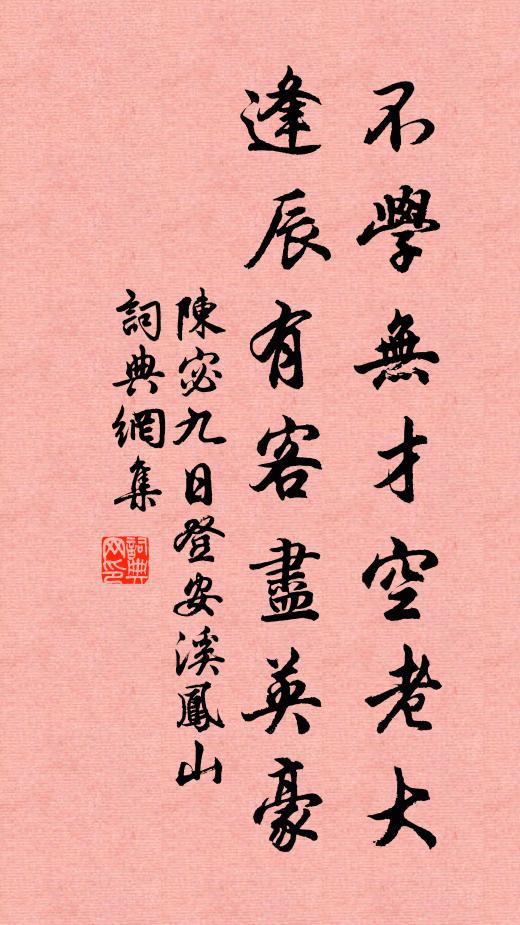 不學無才空老大
逢辰有客盡英豪
陳宓九日登安溪鳳山
詞典網集
詞典网印